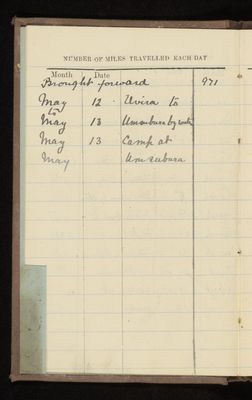 NUMBER OF MILES TRAVELLED EACH DAY
Month Date
Brought forward 971
May 12 . Uvira to
to
May 13 Usumbura by water
May 13 Camp at
May Usumbura